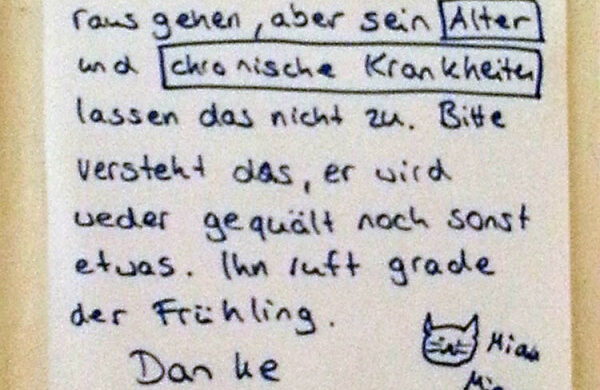 raus gehen, aber sein Alter
und chronische Krankheiten
lassen das nicht zu. Bitte
versteht das, er wird
weder gequält noch sonst
etwas. Ihn ruft grade
der Frühling.
Danke
Miau